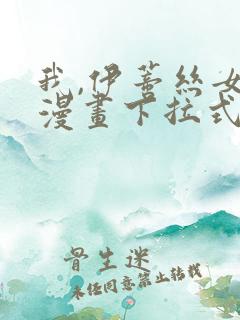 我,伊蕾丝女
漫畫下拉式
骨生迷
未经同意禁止转载